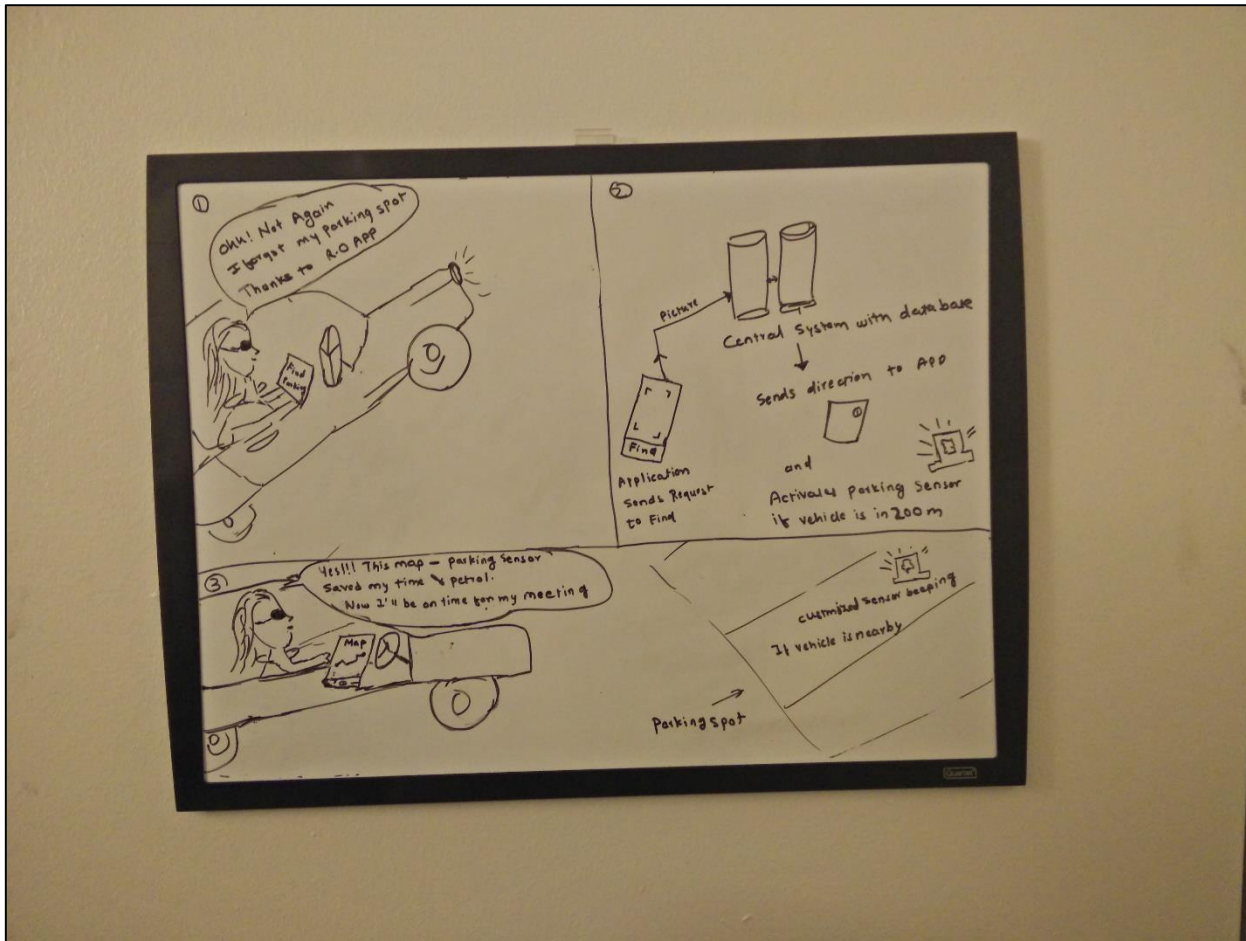 ①
Ohh! Not Again
I forgot my parking spot
Thanks to R.O APP
Find
Parking
②
Picture
Central System with database
Sends direction to App
Find
Application
Sends Request
to Find
and
Activates parking Sensor
if vehicle is in 200 m
③
Yes!!! This map - parking sensor
Saved my time & petrol.
Now I'll be on time for my meeting
Map
custmized sensor beeping
If vehicle is nearby
Parking spot
Quartet